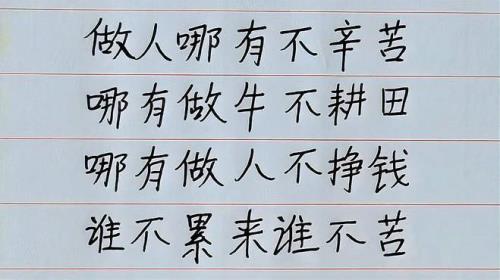 做人哪有不辛苦
哪有做牛不耕田
哪有做人不挣钱
谁不累来谁不苦